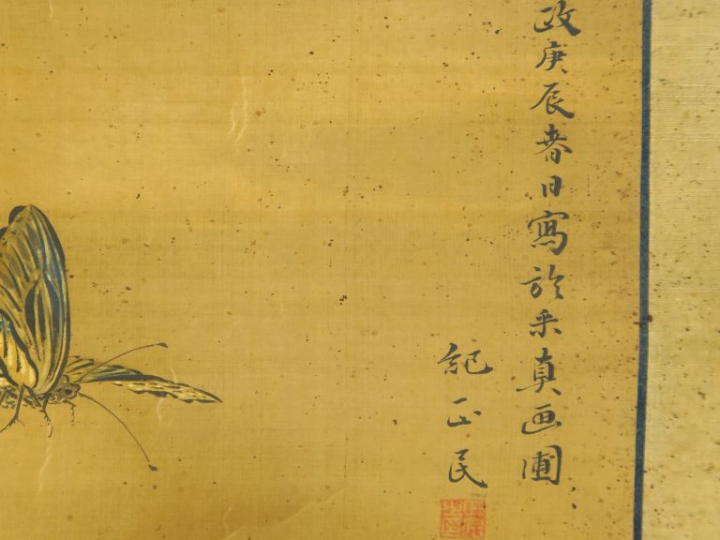 政庚辰春日寫於采真画圃
紀正民